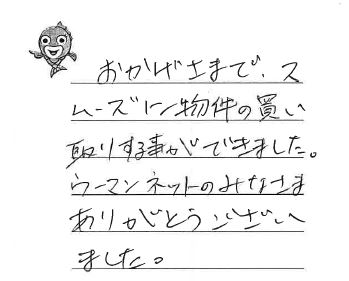 おかげさまで、ス
ムーズに物件の買い
取りする事ができました。
ウーマンネットのみなさま
ありがとうござい
ました。